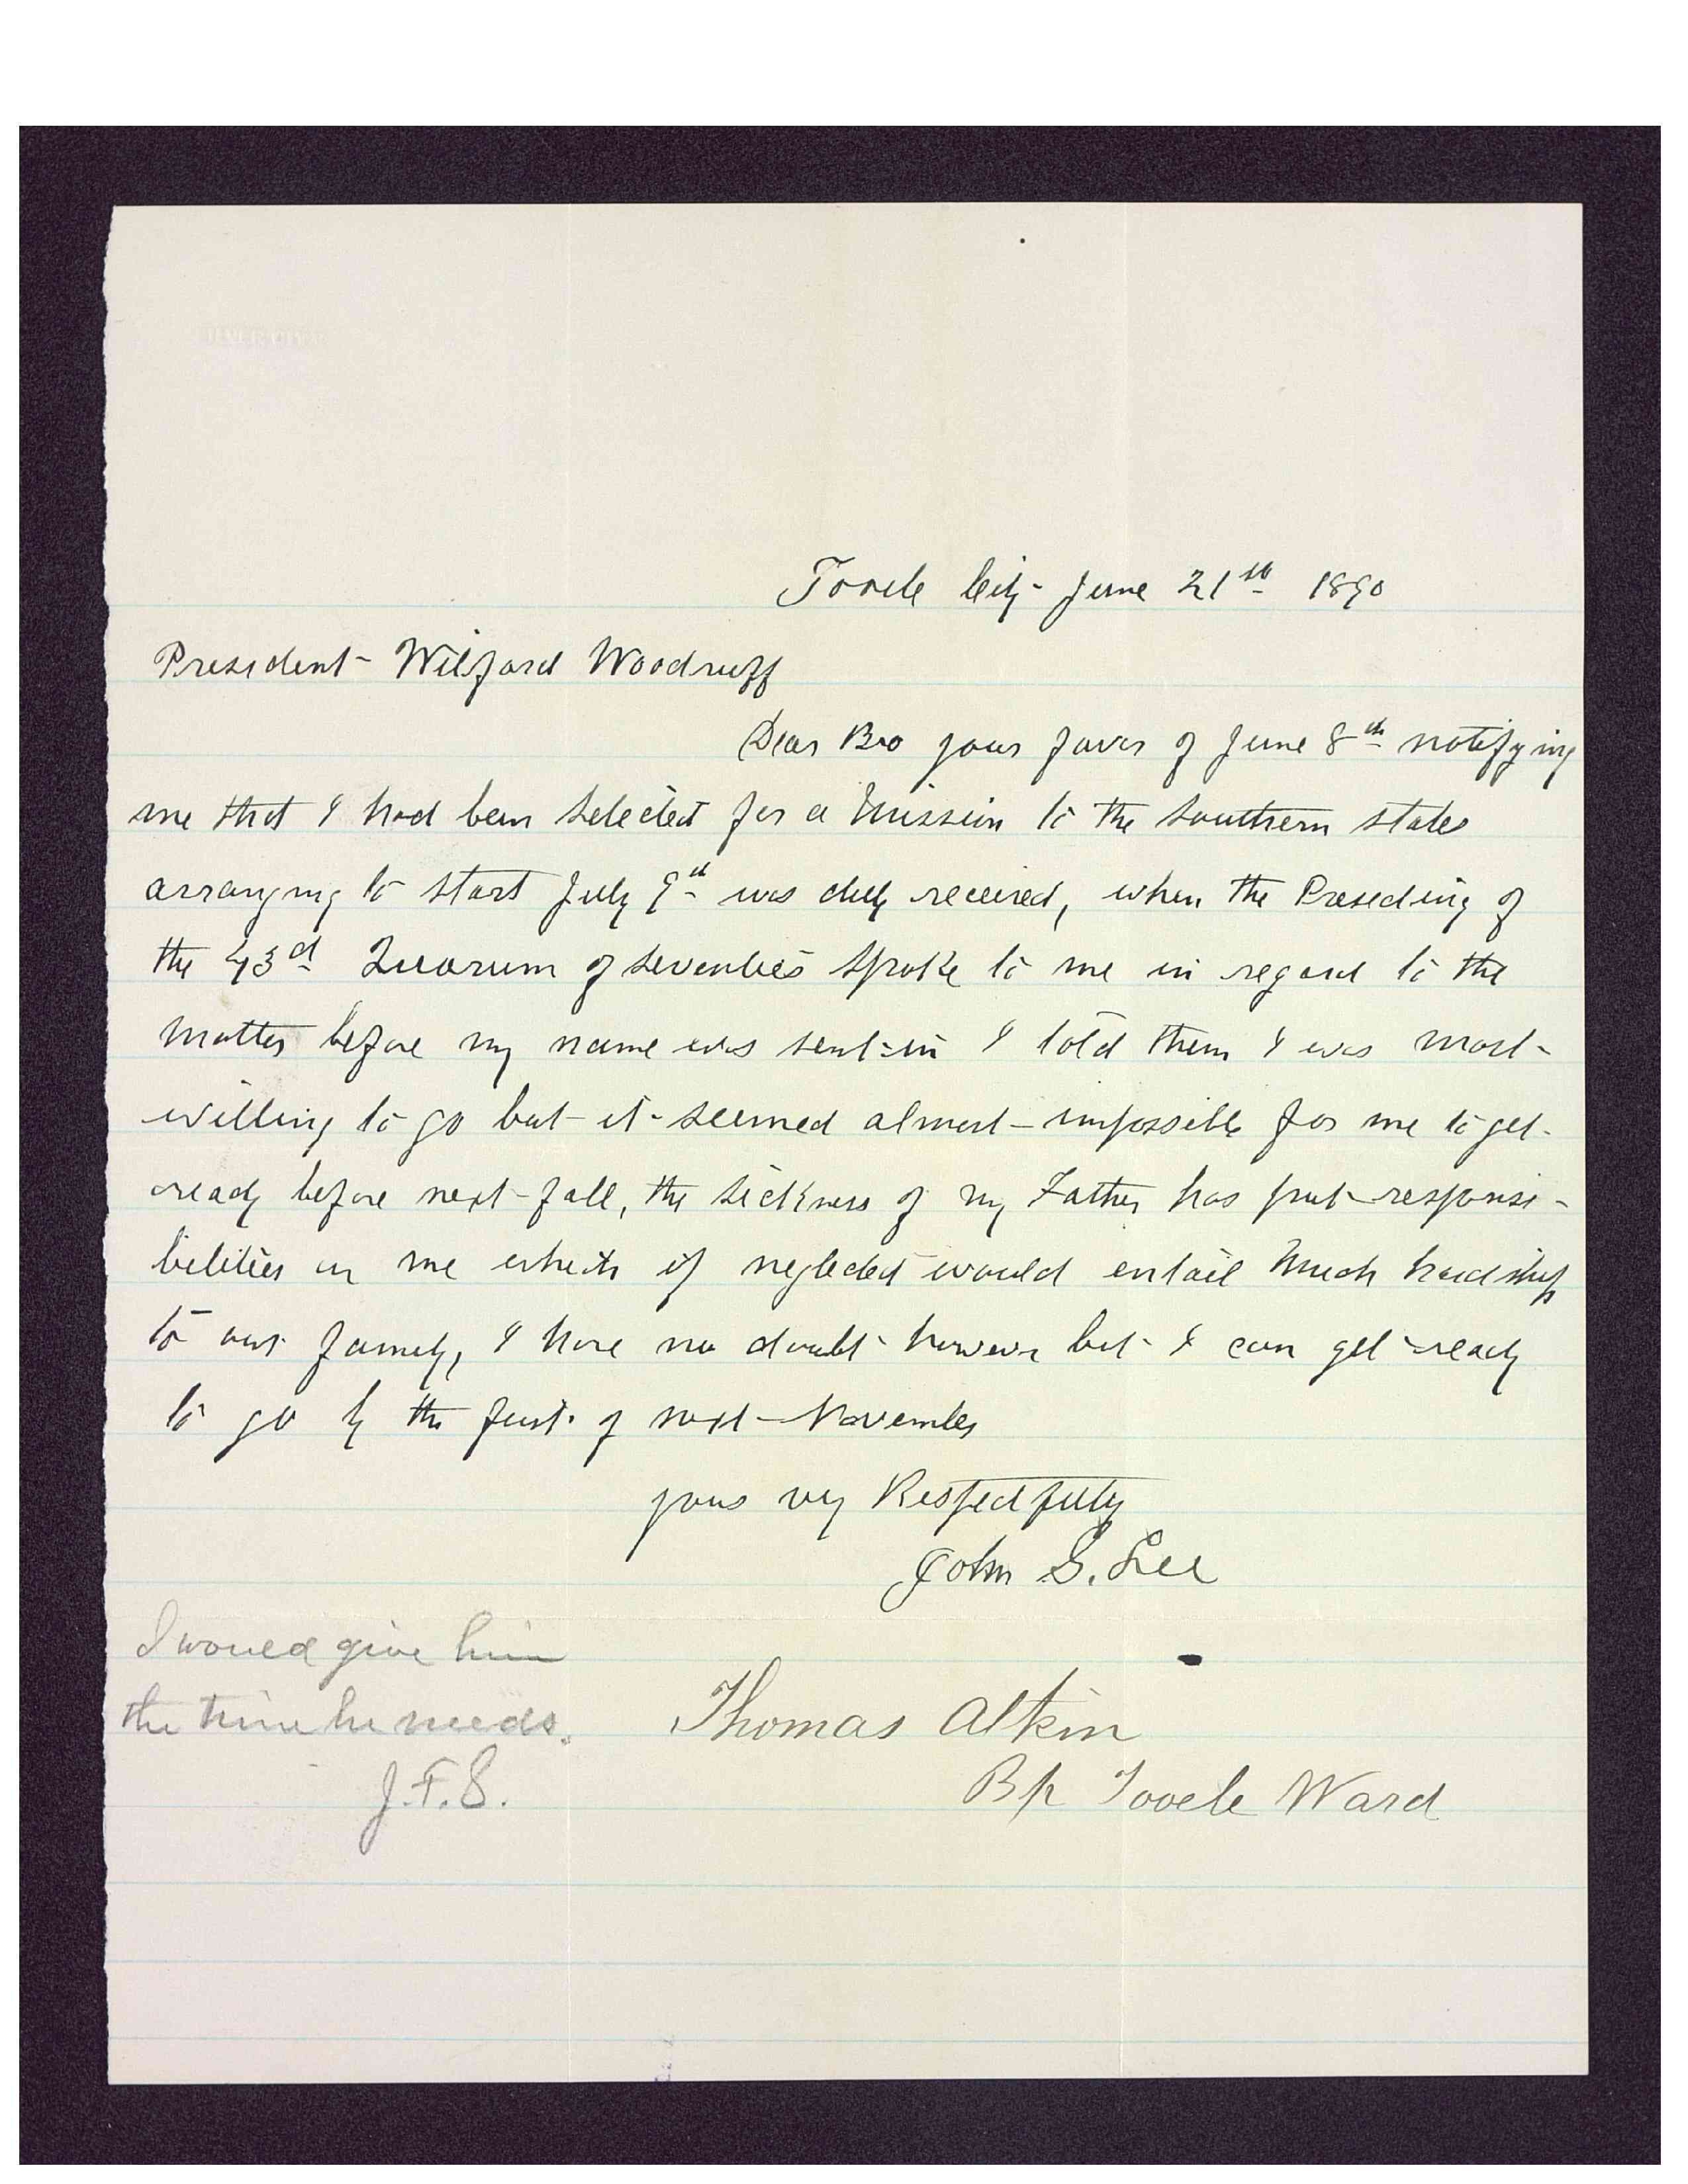 Tooele City June 21st 1890
President Wilford Woodruff
Dear Bro your favor of June 8th notifying
me that I had been selected for a mission to the southern states
arranging to start July 9th was duly received, when the Preseding of
the 43d Quorum of seventies spoke to me in regard to the
matter before my name was sent in I told them I was most
willing to go but it seemed almost impossible for me to get
ready before next fall, the sickness of my Father has put responsi-
bilities on me which if neglected would entail much hardship
to our family, I have no doubt however but I can get ready
to go by the first of next November
yours very Respectfully
John G. Lee
I would give him
the time he needs.
J.F.S.
Thomas Atkin
Bp Tooele Ward